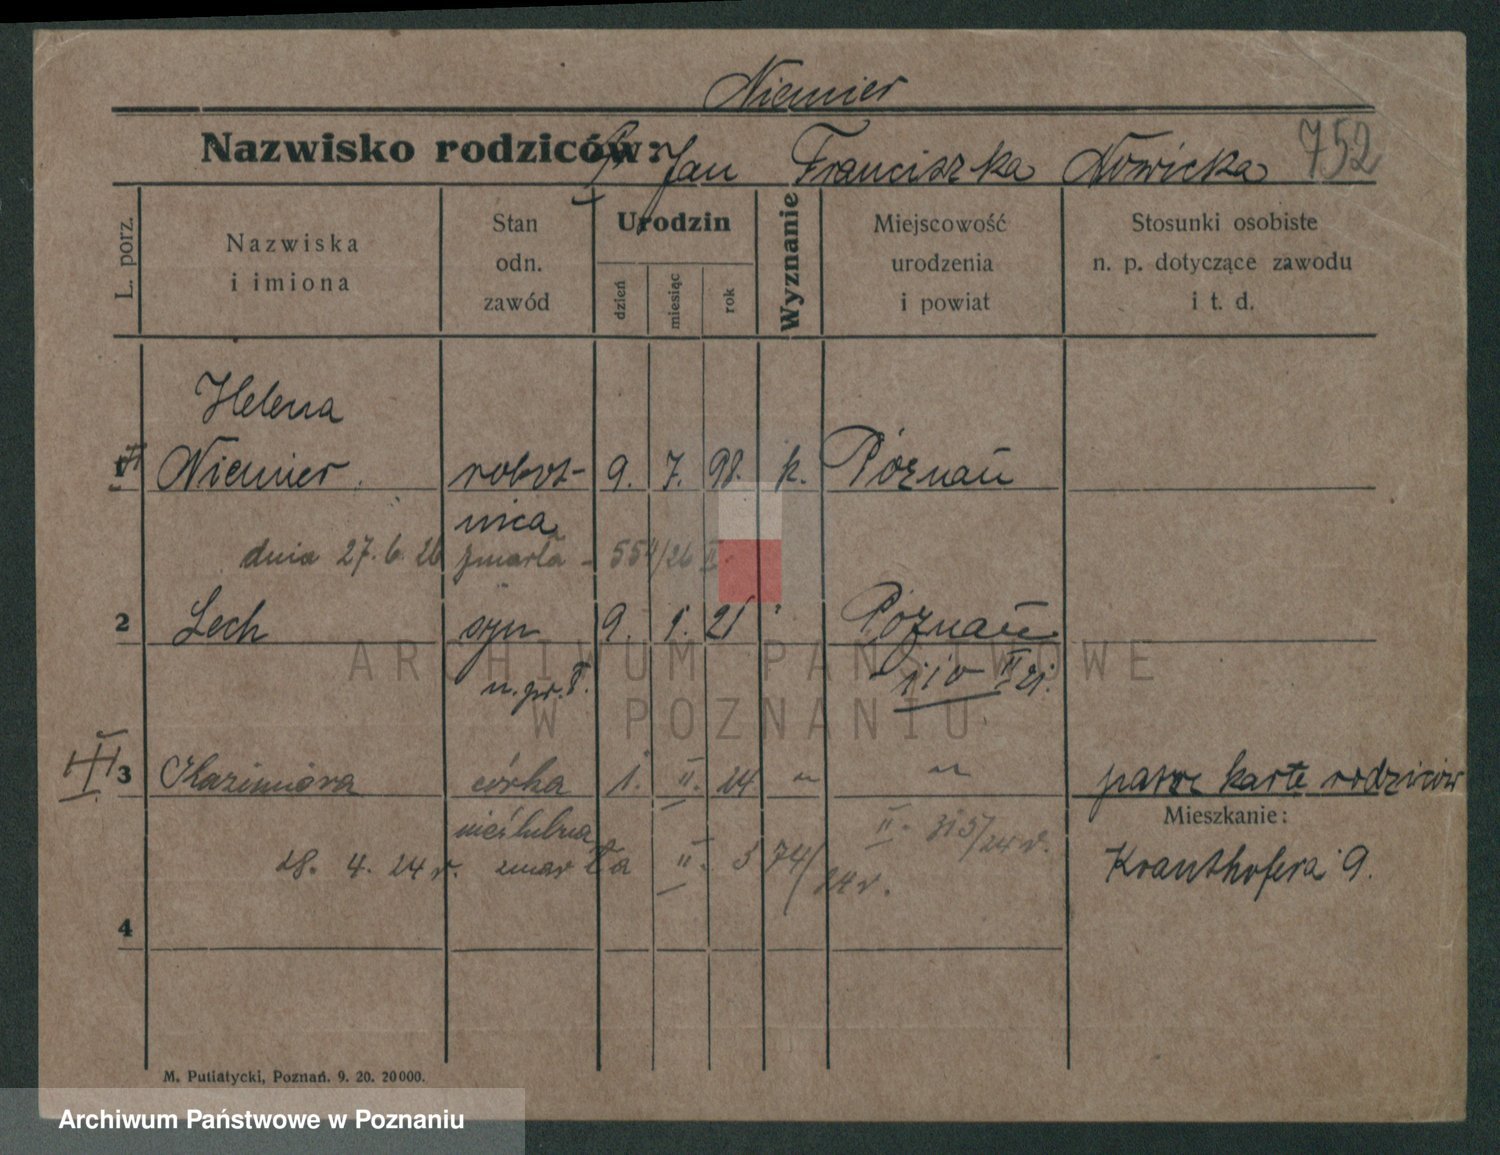 Niemier
Nazwisko rodziców: Jan Franciszka Nowicka 752
L. porz.
Nazwiska
i imiona
Stan
odn.
zawód
Urodzin
dzień
miesiąc
rok
Wyznanie
Miejscowość
urodzenia
i powiat
Stosunki osobiste
n. p. dotyczące zawodu
i t. d.
Helena
1 Niemier robot- 9. 7. 98. k. Poznań
nica
dnia 27. 6. 26 zmarła - 554/26 II
2 Lech syn 9. 1. 21 " Poznań
n. pr. 110 II 21.
3 Kazimiera córka 1. II. 24 " " patrz kartę rodziców
Mieszkanie:
nieślubna II. 313/24 r.
28. 4. 24 r. zmarła II. 374/24 r. Kranthofera 9.
4
M. Putiatycki, Poznań. 9. 20. 20000.
ARCHIWUM PAŃSTWOWE
W POZNANIU
Archiwum Państwowe w Poznaniu